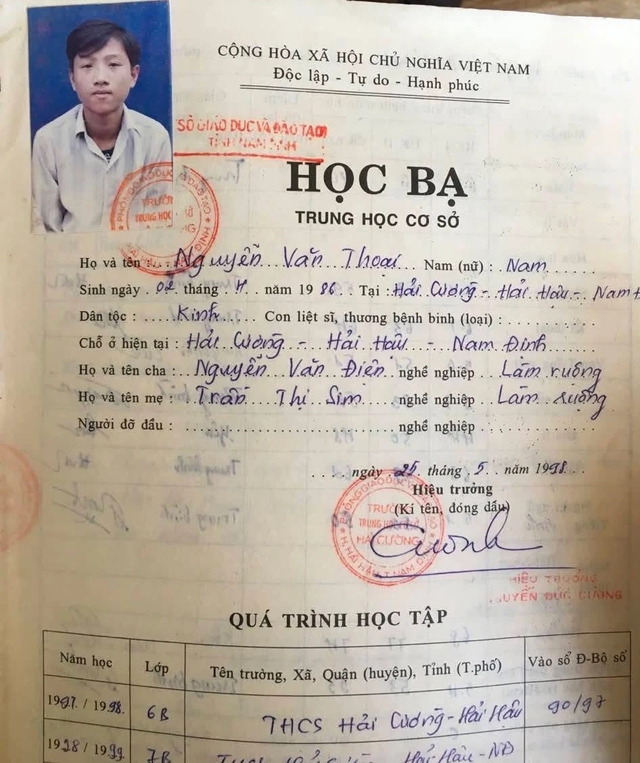 CỘNG HÒA XÃ HỘI CHỦ NGHĨA VIỆT NAM
Độc lập - Tự do - Hạnh phúc
SỞ GIÁO DỤC VÀ ĐÀO TẠO
TỈNH NAM ĐỊNH
HỌC BẠ
TRUNG HỌC CƠ SỞ
Họ và tên : Nguyễn Văn Thoại Nam (nữ) : Nam
Sinh ngày 02 tháng năm 1986 Tại : Hải Cường - Hải Hậu - Nam Đ
Dân tộc : Kinh Con liệt sĩ, thương bệnh binh (loại) :
Chỗ ở hiện tại : Hải Cường - Hải Hậu - Nam Định
Họ và tên cha : Nguyễn Văn Điên nghề nghiệp Làm ruộng
Họ và tên mẹ : Trần Thị Sim nghề nghiệp Làm ruộng
Người đỡ đầu : nghề nghiệp
ngày 25 tháng 5 năm 1998
Hiệu trưởng
(Kí tên, đóng dấu)
TRƯỜNG
TRUNG HỌC CƠ SỞ
HẢI CƯỜNG
HIỆU TRƯỞNG
NGUYỄN ĐỨC CƯƠNG
QUÁ TRÌNH HỌC TẬP
Năm học Lớp Tên trường, Xã, Quận (huyện), Tỉnh (T.phố) Vào sổ Đ-Bộ số
1997 / 1998 6B THCS Hải Cường - Hải Hậu 90/97
1998 / 99 7B Hải Hậu - NĐ